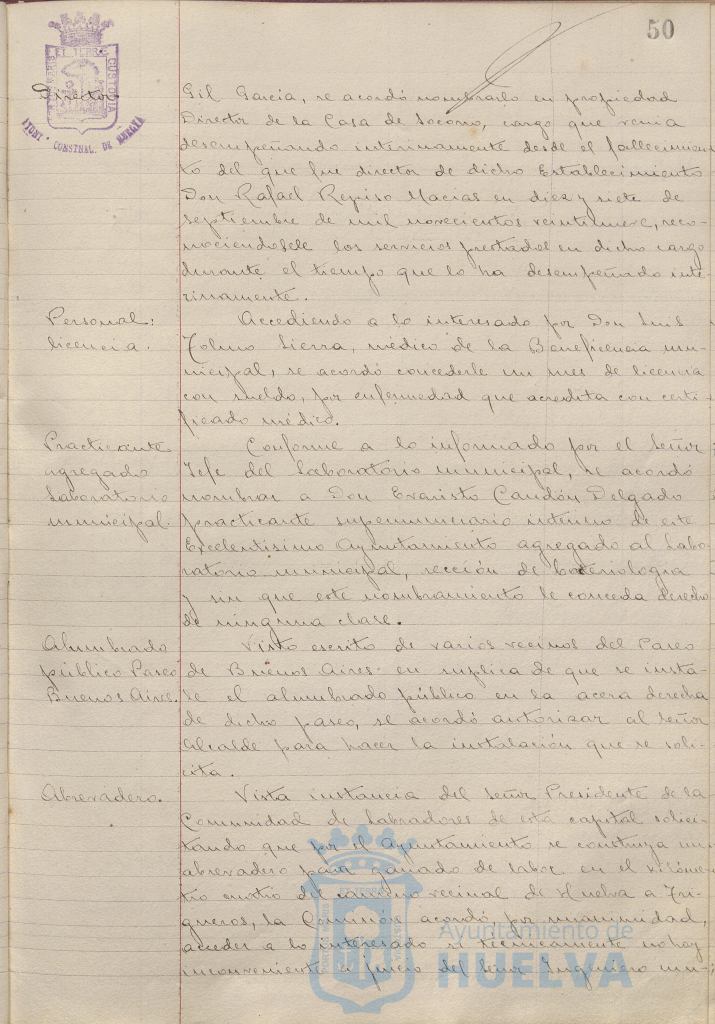 50
PORTUS MARIS ET TERRAE CUSTODIA
AYUNT. CONSTNAL. DE HUELVA
Director
Gil Garcia, se acordó nombrarlo en propiedad
Director de la Casa de Socorro, cargo que venia
desempeñando interinamente desde el fallecimien-
to del que fue director de dicho Establecimiento
Don Rafael Repiso Macias en diez y siete de
septiembre de mil novecientos veintinueve, reco-
nociendosele los servicios prestados en dicho cargo
durante el tiempo que lo ha desempeñado inte-
rinamente.
Personal:
licencia.
Accediendo a lo interesado por Don Luis
Tolmo Sierra, médico de la Beneficencia mu-
nicipal, se acordó concederle un mes de licencia
con sueldo, por enfermedad que acredita con certi-
ficado médico.
Practicante
agregado
Laboratorio
municipal.
Conforme a lo informado por el Señor
Jefe del Laboratorio municipal, se acordó
nombrar a Don Evaristo Candón Delgado
practicante supernumerario interino de este
Excelentisimo Ayuntamiento agregado al Labo-
ratorio municipal, sección de bacteriologia
y sin que este nombramiento le conceda derecho
de ninguna clase.
Alumbrado
público Paseo
Buenos Aires.
Visto escrito de varios vecinos del Paseo
de Buenos Aires en suplica de que se insta-
le el alumbrado público en la acera derecha
de dicho paseo, se acordó autorizar al Señor
Alcalde para hacer la instalación que se soli-
cita.
Abrevadero.
Vista instancia del Señor Presidente de la
Comunidad de Labradores de esta capital solici-
tando que por el Ayuntamiento se construya un
abrevadero para ganado de labor en el kilóme-
tro cuatro del camino vecinal de Huelva a Tri-
gueros, la Comisión acordó, por unanimidad,
acceder a lo interesado si técnicamente no hay
inconveniente a juicio del Señor Ingeniero mu-
Ayuntamiento de
HUELVA